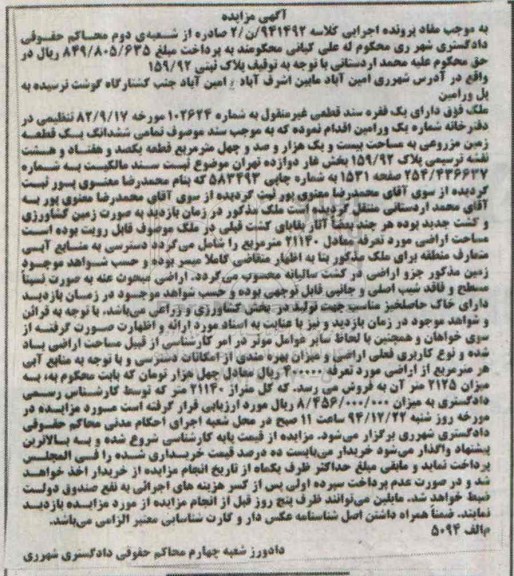 آگهی مزایده
به موجب مفاد پرونده اجرایی کلاسه ۹۴۱۴۹۲/ن/۲ صادره از شعبه‌ی دوم محاکم حقوقی
دادگستری شهر ری محکوم له علی کیانی محکومند به پرداخت مبلغ ۸۴۹/۸۰۵/۶۳۵ ریال در
حق محکوم علیه محمد اردستانی با توجه به توقیف پلاک ثبتی ۱۵۹/۹۲
واقع در آدرس شهرری امین آباد مابین اشرف آباد و امین آباد جنب کشتارگاه گوشت نرسیده به
پل ورامین
ملک فوق دارای یک فقره سند قطعی غیرمنقول به شماره ۱۰۲۶۲۴ مورخه ۸۲/۹/۱۷ تنظیمی در
دفترخانه شماره یک ورامین اقدام نموده که به موجب سند موصوف تمامی ششدانگ یک قطعه
زمین مزروعی به مساحت بیست و یک هزار و صد و چهل مترمربع قطعه یکصد و هفتاد و هشت
نقشه ترسیمی پلاک ۱۵۹/۹۲ بخش غار دوازده تهران موضوع ثبوت سند مالکیت به شماره
۲۵۴/۴۳۶۶۳۷ صفحه ۱۵۳۱ به شماره چاپی ۵۸۳۴۹۳ که بنام محمدرضا معنوی پور ثبت
گردیده از سوی آقای محمدرضا معنوی پور ثبت گردیده از سوی آقای محمدرضا معنوی پور به
آقای محمد اردستانی منتقل گردیده است ملک مذکور در زمان بازدید به صورت زمین کشاورزی
و کشت جدید بوده هر چند بعضاً آثار بقایای کشت قبلی در ملک موصوف قابل رویت بوده است
مساحت اراضی مورد تعرفه معادل ۲۱۱۴۰ مترمربع را شامل می‌گردد دسترسی به منابع آبی
متعارف منطقه برای ملک مذکور بنا به اظهار متقاضی کاملا میسر بوده و حسب شواهد موجود
زمین مذکور جزو اراضی در کشت سالیانه محسوب می‌گردد. اراضی مبحوث عنه به صورت نسبتاً
مسطح و فاقد شیب اصلی و جانبی قابل توجهی بوده و حسب شواهد موجود در زمان بازدید
دارای خاک حاصلخیز مناسب جهت تولید در بخش کشاورزی و زراعی می‌باشد. با توجه به قرائن
و شواهد موجود در زمان بازدید و نیز با عنایت به اسناد مورد ارائه و اظهارت صورت گرفته از
سوی خواهان و همچنین با لحاظ سایر عوامل موثر در امر کارشناسی از قبیل مساحت اراضی یاد
شده و نوع کاربری فعلی اراضی و میزان بهره مندی از امکانات دسترسی و با توجه به منابع آبی
هر مترمربع از اراضی مورد تعرفه ۴۰۰۰۰۰ ریال معادل چهل هزار تومان که بابت محکوم به، به
میزان ۲۱۲۵ متر آن به فروش می رسد. که کل متراژ ۲۱۱۴۰ متر که توسط کارشناس رسمی
دادگستری به میزان ۸/۴۵۶/۰۰۰/۰۰۰ ریال مورد ارزیابی قرار گرفته است مورد مزایده در
مورخه روز شنبه ۹۴/۱۲/۲۲ ساعت ۱۱ صبح در محل شعبه اجرای احکام مدنی محاکم حقوقی
دادگستری شهرری برگزار می‌شود. مزایده از قیمت پایه کارشناسی شروع شده و به بالاترین
پیشنهاد واگذار می‌شود خریدار می‌بایست ده درصد قیمت خریداری شده را فی المجلس
پرداخت نماید و مابقی مبلغ حداکثر ظرف یکماه از تاریخ انجام مزایده از خریدار اخذ خواهد
شد و در صورت عدم پرداخت سپرده اولی پس از کسر هزینه های اجرائی به نفع صندوق دولت
ضبط خواهد شد. مایلین می‌توانند ظرف پنج روز قبل از انجام مزایده از مورد مزایده بازدید
نمایند. ضمناً همراه داشتن اصل شناسنامه عکس دار و کارت شناسایی معتبر الزامی می‌باشد.
م‌الف ۵۰۹۴
دادورز شعبه چهارم محاکم حقوقی دادگستری شهرری